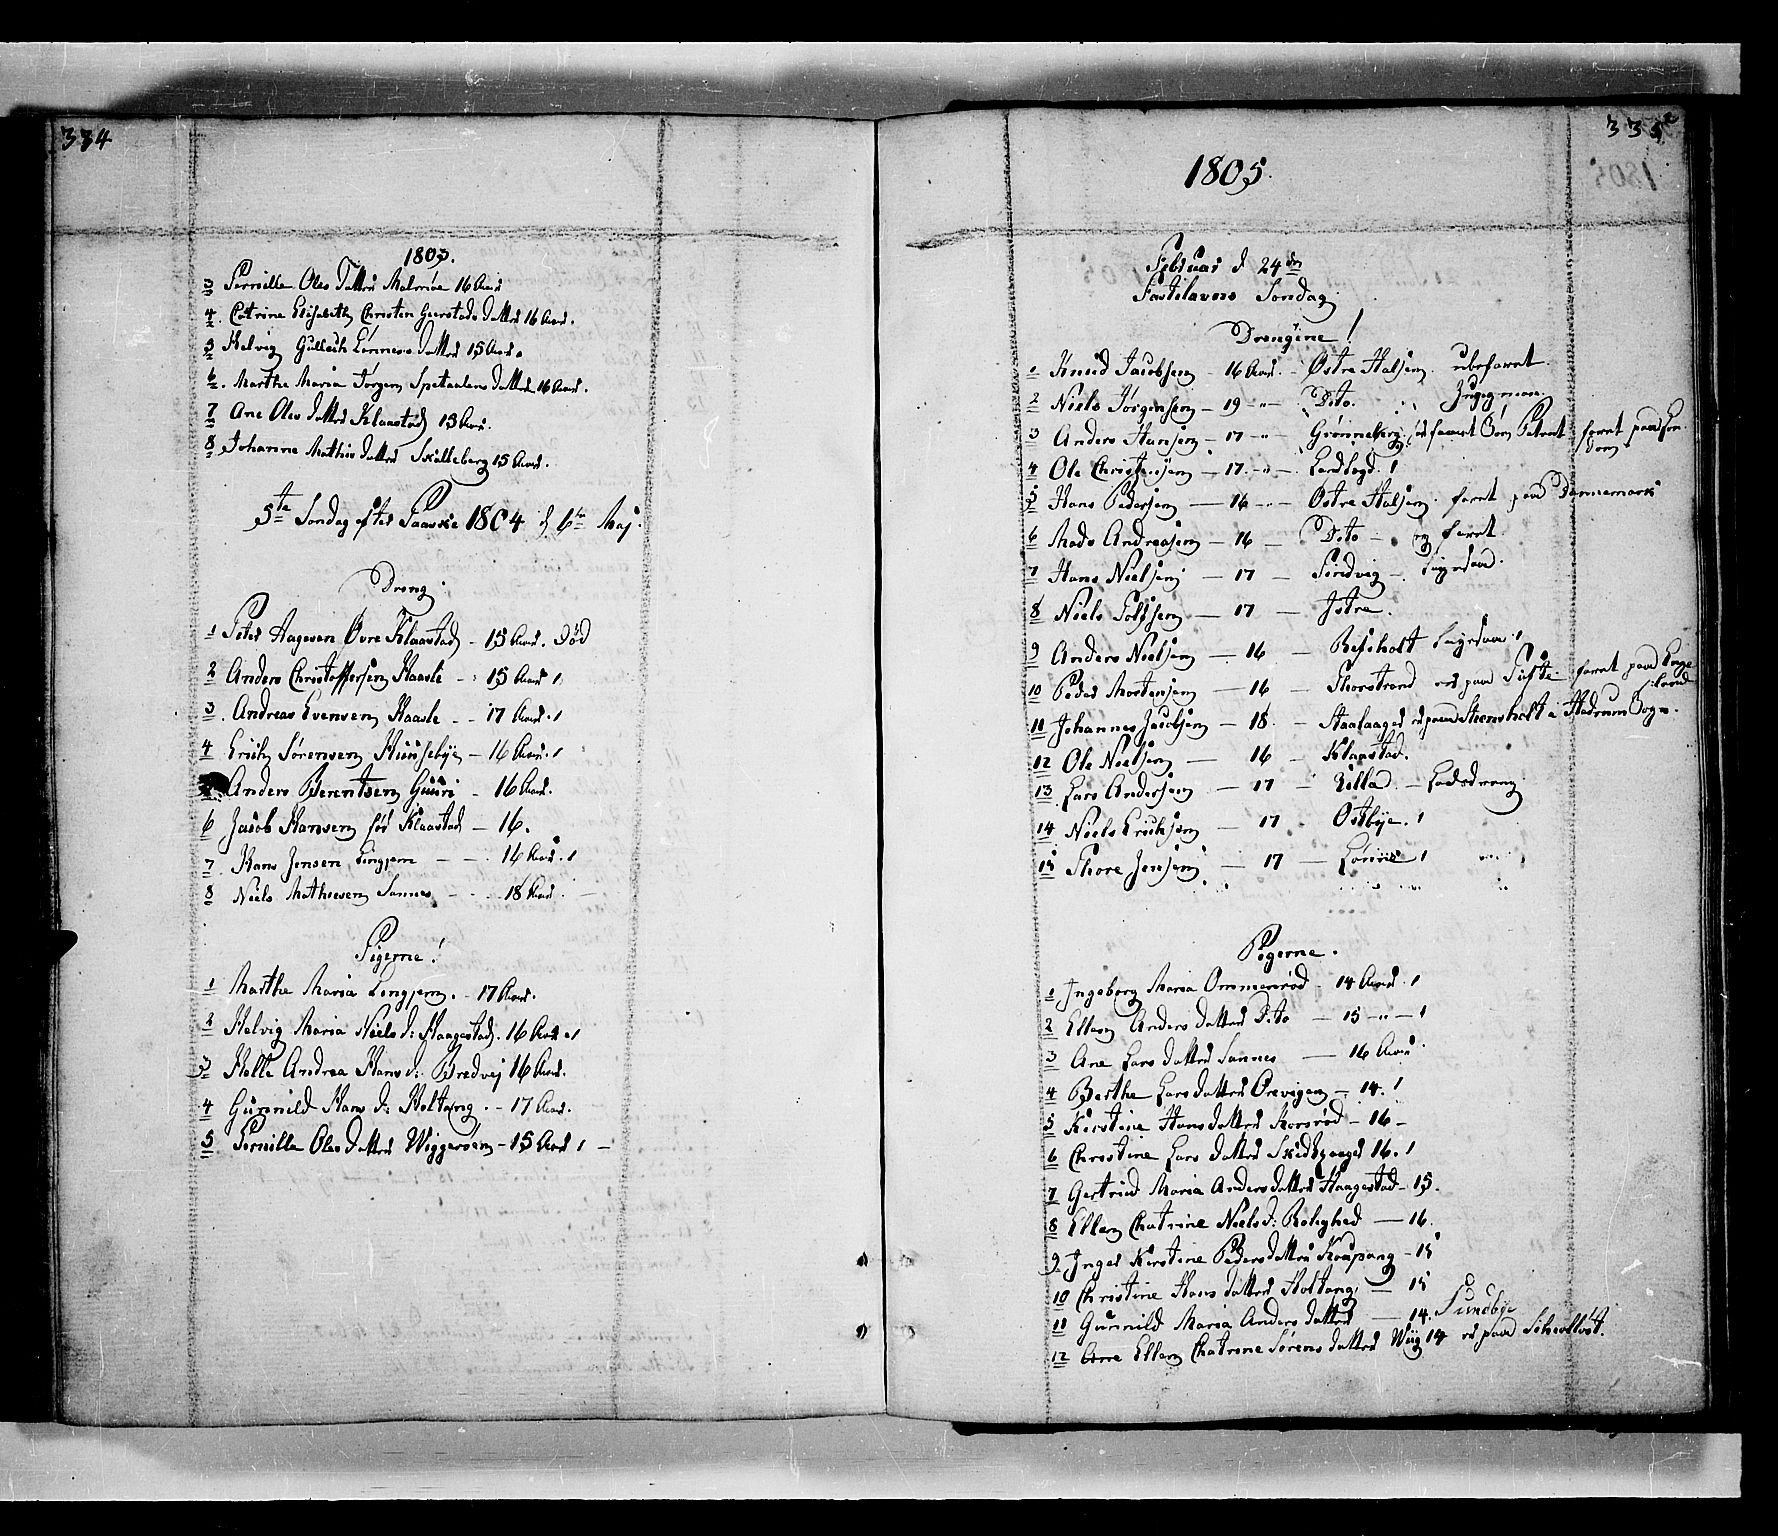 334
1803.
3 Pernille Oles Datter Malmöe 16 Aar
4. Catrine Elisabeth Christen Gurstads Datter 16 Aar.
5 Helvig Gullich Lønners datter 15 Aar.
6. Marthe Maria Jörgen Spetaalens Datter 16 Aar.
7 Ane Oles datter Klaastad 15 Aar.
8 Johanne Mathis datter Skilleberg 15 Aar.
5te Søndag efter Paaske 1804 d. 6te Maj.
Dreng
1 Peter Aagesen Øvre Klaastad - 15 Aar. Død
2 Anders Christoffersen Haasle - 15 Aar
3. Andreas Evensen Haasle - - 17 Aar.
4 Erich Sørensen Huusebye - 16 Aar.
Anders Berentsen Guuri - 16 Aar.
6 Jacob Hansen sød Klaastad - 16.
7. Hans Jensen Lingjem - - 16 Aar.
8 Niels Mathiesen Sannes - - 18 Aar.
Pigerne!
1 Marthe Maria Lingjem. - 17 Aar.
2 Helvig Maria Niels d: Haagestad. 16 Aar
3 Helle Andrea Hans d: Bredvej 16 Aar.
4 Gunnild Hans d: Holtang. - 17 Aar.
5 Pernille Oles datter Wiggersøen - 15 Aar
335
1805.
Februar d 24de
Fastelavns Søndag
Drengene!
1 Knud Jacobsen - 16 Aar. - Østre Halsen. ubefaret.
2 Niels Jörgensen - 19 - " - Dito.
3 Anders Hansen - 17 - " - Grønneberg
4 Ole Christensen - 17. - " - Landfogd.
5 Hans Pedersen - 16 - " - Østre Halsen. faret paa Dannemark
6 Mads Andreasen - 16 - Dito - og faret.
7 Hans Nielsen - 17 - Sondvig - ligesaa.
8 Niels Tolfsen - 17 - Istre.
9 Anders Nielsen - 16 - Refsholt ligesaa
10 Peder Mortensen - 16 - Thorstrand er paa Tufte faret paa Engeland
11 Johannes Jacobsen - 18. - Staalaager er paa Steensholt i Hedrum Sogn.
12 Ole Nielsen - 16 - Klaastad.
13 Lars Andersen - 17 - Ulla - Lodsdreng
14 Niels Erichsen - 17 - Østbye.
15 Thore Jensen - 17 - Lønne
Pigerne.
1 Ingeborg Maria Ommensrød - 14 Aar.
2 Ellen Anders datter Dito - 15 - " -
3 Ane Lars datter Sannes - 16 Aar
4 Berthe Lars datter Ørevigen - 14.
5 Kirstine Hans datter Korsrød - 16 -
6 Christine Lars datter Skidtzager 16.
7 Gertrud Maria Anders datter Haagestad - 15.
8 Ellen Chatrine Niels d: Rolighed - 16.
9 Inger Kirstine Peders datter Kaupang - 15
10 Christine Hans datter Holtang - 15
11 Gunnild Maria Anders datter - 14. Sundbye
12 Ane Ellen Chatrine Sørens datter Wiig 14 er paa